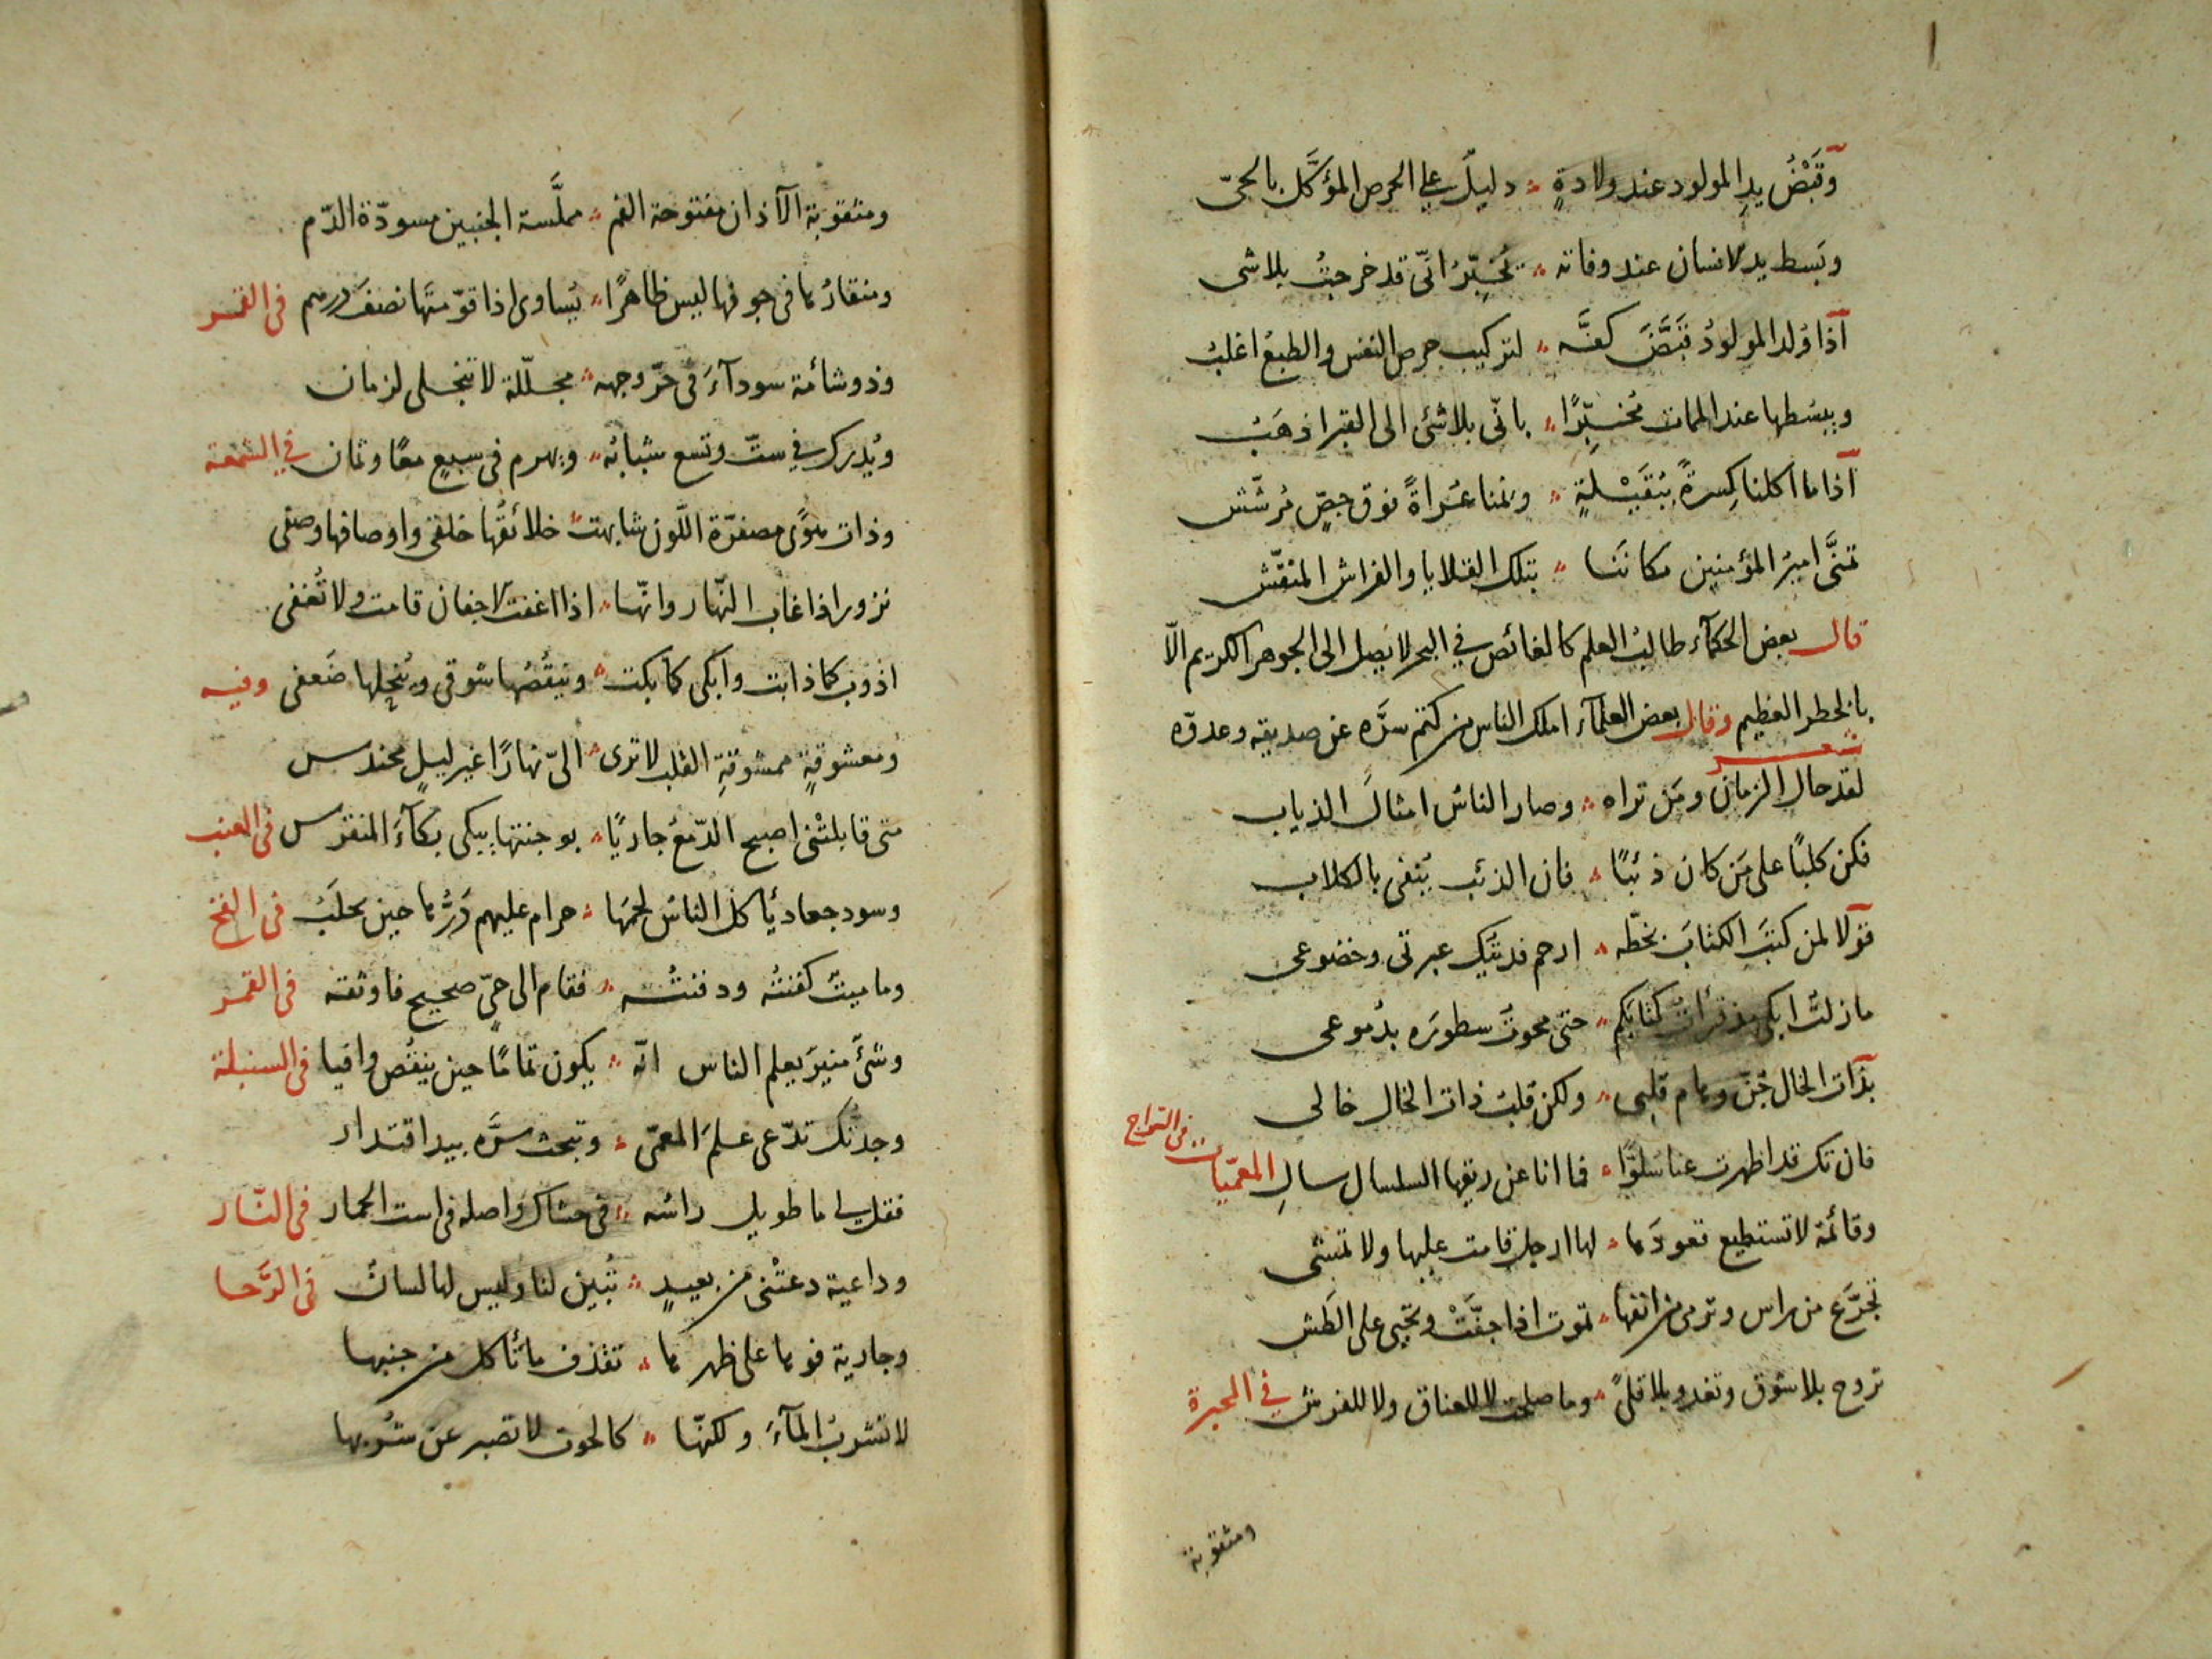 وقَبْضُ يدِ المولود عند ولادةٍ ؞ دليلٌ على الحرص المؤكَّل بالحيّ
وبَسط يد لانسان عند وفاته ؞ يُخبِّرُ انّى قد خرجتُ بلاشى
اذا وُلد المولودُ قبَّضَ كفَّه ؞ لتركيب حرص النفس والطبعُ اغلبُ
ويبسُطها عند الممات مُخبِّرًا ؞ بانّى بلاشئ الى القبر اذهَبُ
اذا ما اكلنا كِسرةً بِبُقَيْلةٍ ؞ ونمنا عُراةً فوق جصٍّ مُرشّش
تمنَّى اميرُ المؤمنين مكاننَا ؞ بتلك القلايا والفراش المنقّش
قال بعض الحكمآء طالبُ العلم كالغائص في البحر لا يَصِل الى الجوهر الكريم الّا
بالخطر العظيم وقال بعض العلمآء املك الناس من كتم سرَّه عن صديقه وعدوّه
شعـــر
لقد حال الزمان ومَن تراه ؞ وصار الناسُ امثالَ الذياب
فكن كلبًا على مَن كان ذئبًا ؞ فان الذئب يُتقى بالكلاب
قولا لمن كتبَ الكتابَ بخطّه ؞ ارحم فديتُك عبرتى وخضوعى
ما زلتُ ابكى مذ قرأت كتابكم ؞ حتى محوتُ سطورَه بدُموعى
بذات الخال جُنّ وهام قلبى ؞ ولكن قلبُ ذات الخال خالى
فان تك قد اظهرت عنا سُلوًّا ؞ فما انا عن ريقها السلسال سالِ المعمّيات
في السّراج
وقائمة لا تستطيع قعودَها ؞ لها ارجل قامت عليها ولا تمشى
تجرَّع من راس وترمى من انفها ؞ تموت اذا جفّتْ وتحيى على الطش
تروح بلا شوق وتغدو بلا قلىً ؞ وما صلحت لا للعناق ولا للفرش في المحبرة
ومثقوبة
ومثقوبة الآذان مفتوحة الفم ؞ مملَّسة الجنبين مسودّة الدّم
ومنقارُها فى جوفها ليس ظاهرًا ؞ يُساوى اذا قوّمتَها نصفَ درهم فى القمر
وذو شامة سودآءَ فى حرّ وجهه ؞ مجلّلة لا تنجلى لزمان
ويُدرك في ستّ وتسع شبابُه ؞ ويهرم فى سبعٍ معًا وثمان في الشمعة
وذات هوًى مصفرّة اللّون شابهت ؞ خلائقُها خلقى واوصافها وصفى
تزور اذا غاب النّهار وانّها ؞ اذا اغفت لاجفان قامت ولا تُغفى
اذوب كما ذابت وابكى كما بكت ؞ وينقُصُها شوقى ويُنحِلها ضَعفى وفيه
ومعشوقةٍ ممشوقةِ القلب لا ترى ؞ الىّ نهارًا غير ليلٍ محندس
متى قابلتْنى اصبح الدّمعُ جاريًا ؞ بوجنتها يبكى بكآءَ المنقرس فى العنب
وسود جعاد يأكل الناسُ لحمَها ؞ حرام عليهم دَرُّها حين يحلَبُ فى الفخ
وما ميتٌ كفنتُه ودفنتُـه ؞ فقام الى حىٍّ صحيح فاوثقه فى القمر
وشئ منيرٌ يعلم الناس انّه ؞ يكون تمامًا حين ينقُص وافيا فى السنبلة
وجدتُك تدّعى علمَ المعمّى ؞ وتبحث سرَّه بيد اقتدار
فقل لى ما طويل راسُه ؞ فى حشاك واصله فى است الحمار فى النّار
وداعية دعتْنى من بعيدٍ ؞ تُبين لنا وليس لها لسانُ فى الرَّحا
وجارية فوها على ظهرها ؞ تقذف ما تأكل من جنبها
لا تشربُ المآءَ ولكنّها ؞ كالحوت لا تصبر عن شُربها